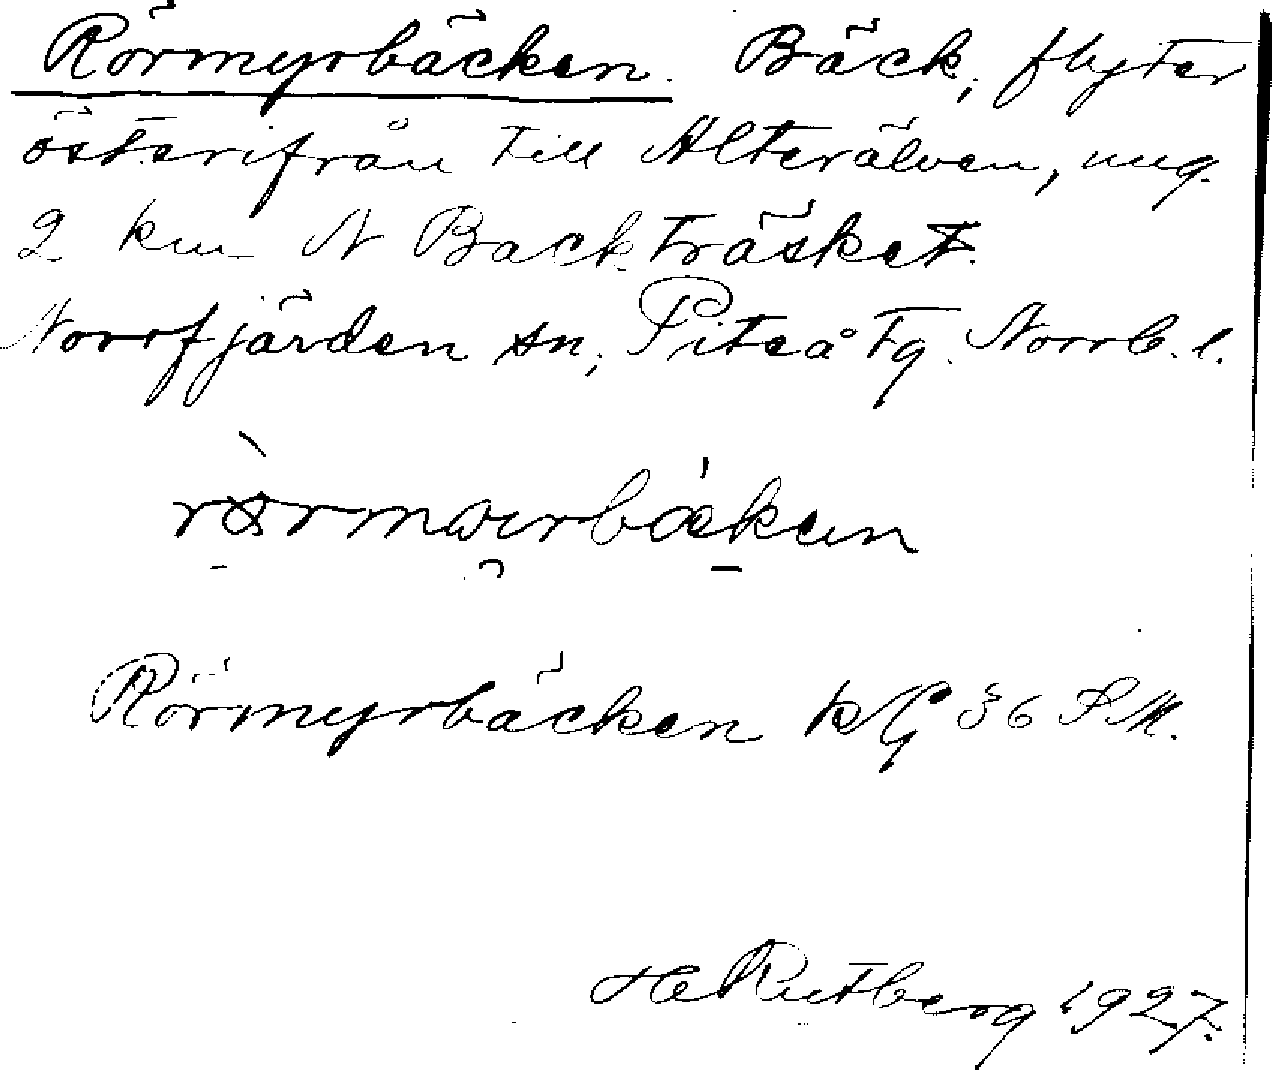 Rörmyrbäcken. Bäck, flyter
österifrån till Alterälven, ung.
2 km N Backträsket.
Norrfjärden sn, Piteå tg. Norrb. l.
Rörmyrbäcken kG 36 S.M.
H Rutberg 1927.